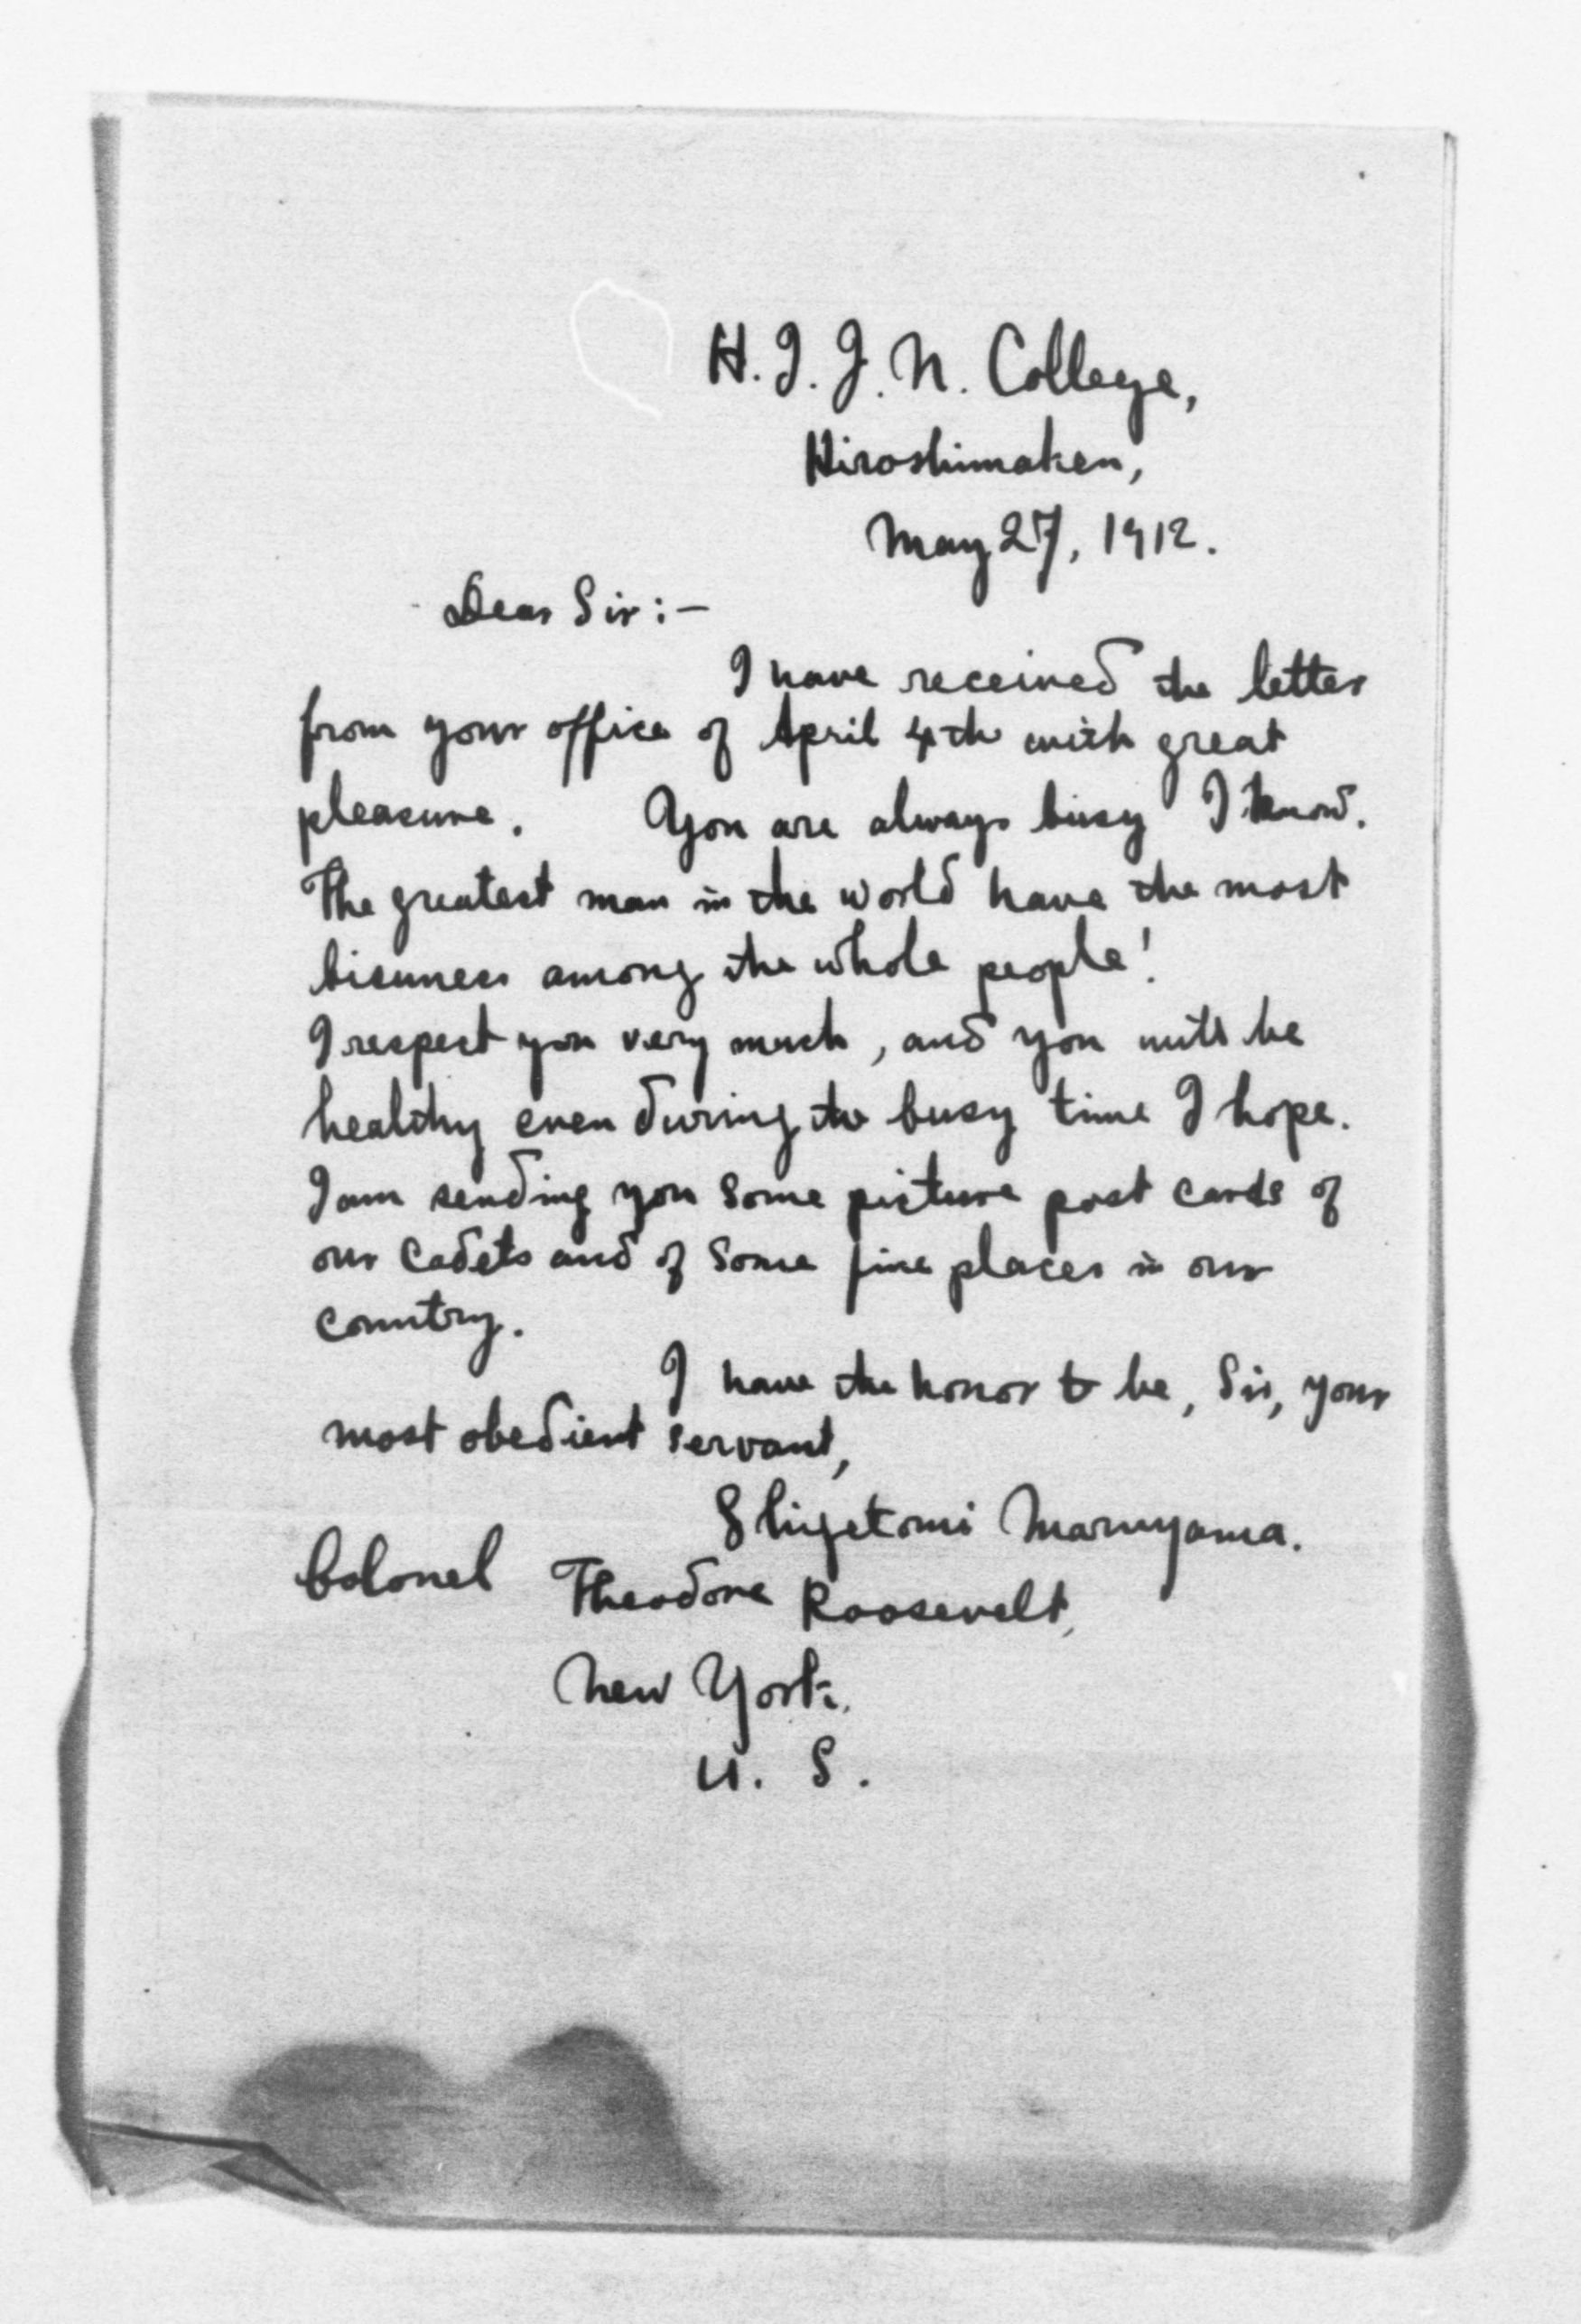 H. I. J. N. College,
Hiroshimaken,
May 27, 1912.
Dear Sir:-
I have received the letter
from your office of April 4th with great
pleasure. You are always busy I know.
The greatest man in the world have the most
among the whole people!
I respect you very much, and you will be
healthy even during the busy time I hope.
I am sending you some picture post cards of
our Cadets and of Some fine places in our
Country.
I have the honor to be, Sir, your
most obedient servant,
Shigetomi Maruyama.
Colonel Theodore Roosevelt,
New York.
U. S.